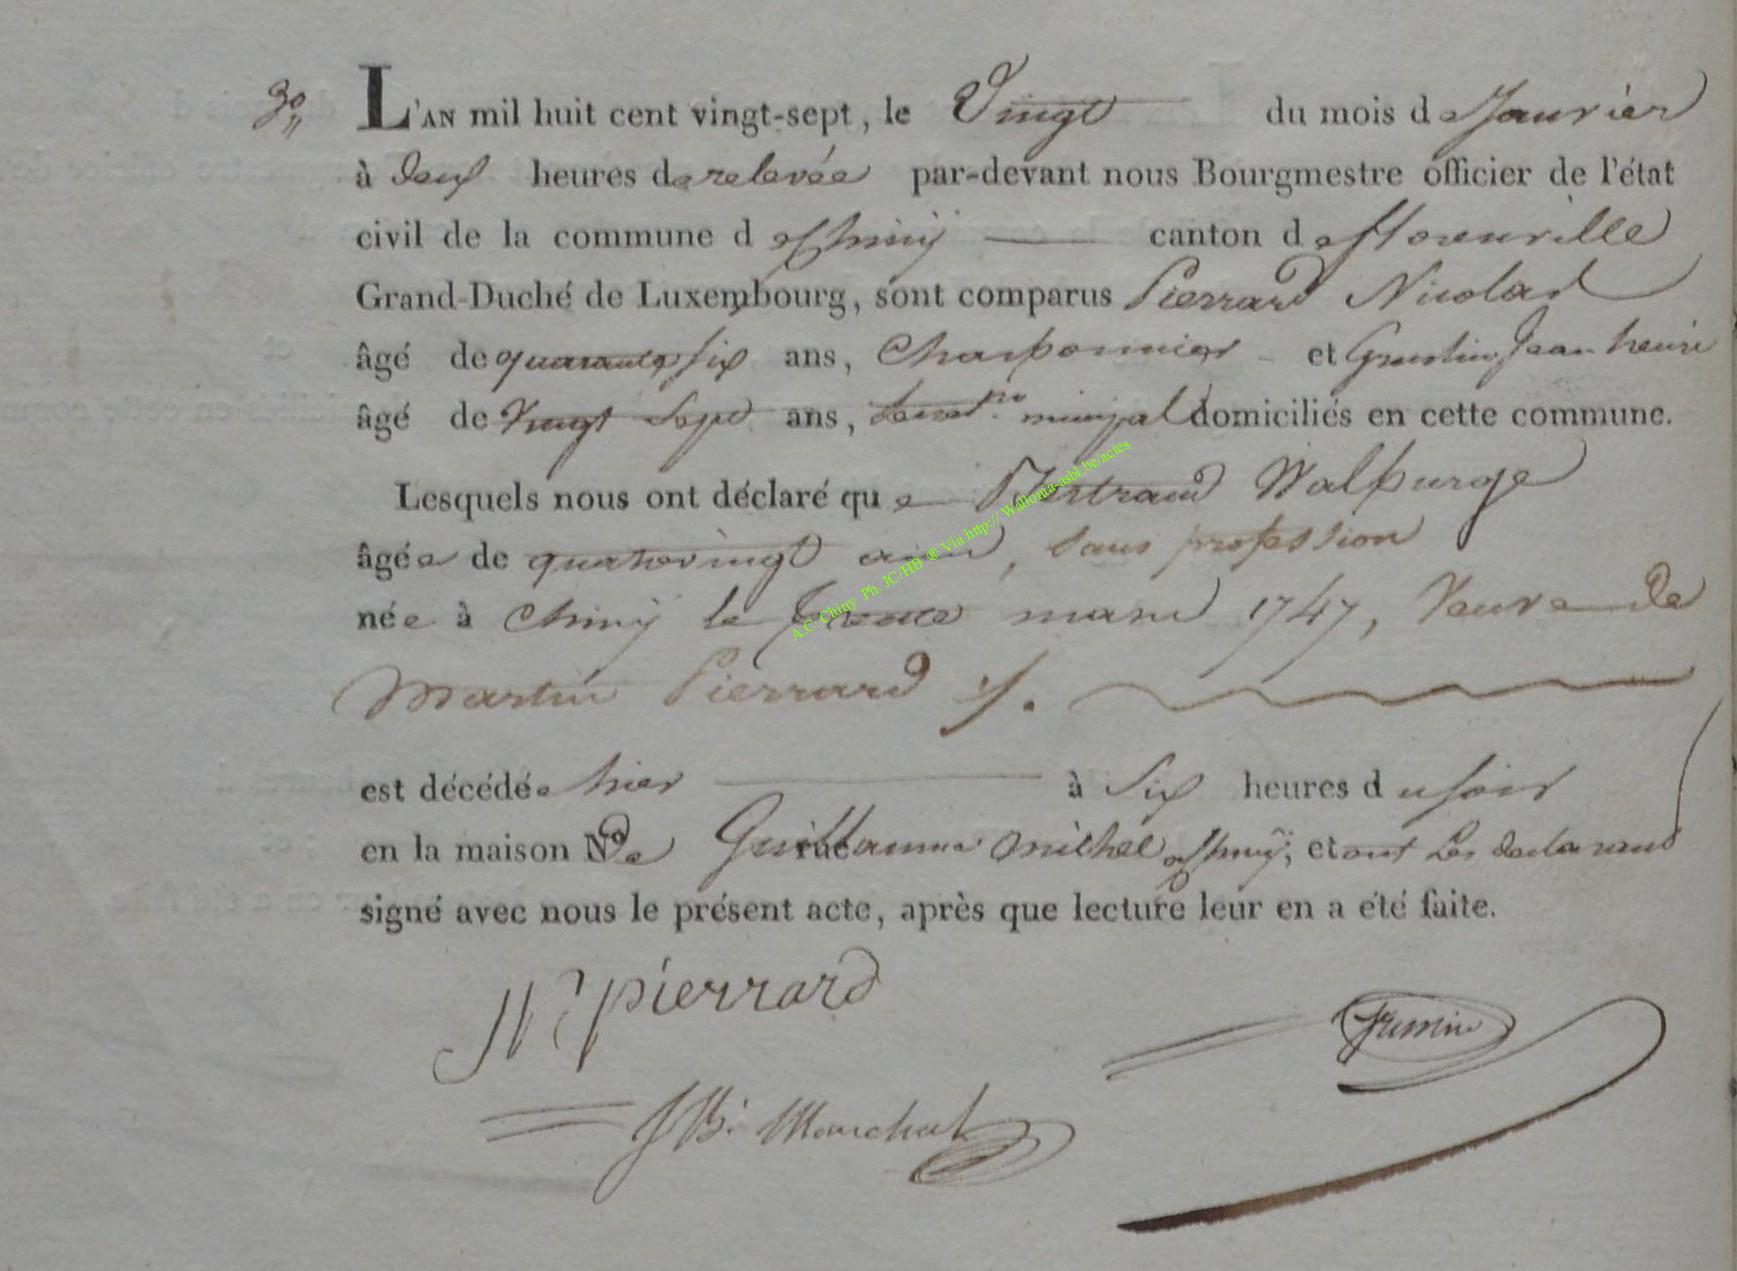 3°
L'AN mil huit cent vingt-sept, le Vingt du mois de Janvier
à deux heures de relevée par-devant nous Bourgmestre officier de l'état
civil de la commune de Chiny canton de florenville
Grand-Duché de Luxembourg, sont comparus Pierrard Nicolas
âgé de quarante six ans, Charbonnier et Jean henri
âgé de Vingt Sept ans, domiciliés en cette commune.
Lesquels nous ont déclaré que Walburge
âgée de quatrevingt ans, sans profession
née à Chiny le trente mars 1747, Veuve de
Martin Pierrard
est décédée hier à Six heures du soir
en la maison N° de rue Guillaume michel à Chiny; et ont Les declarans
signé avec nous le présent acte, après que lecture leur en a été faite.
Ns pierrard
JB: Marchal
A.C. Chiny Ph. JC HB ® Via http:// Wallonia-asbl.be/actes